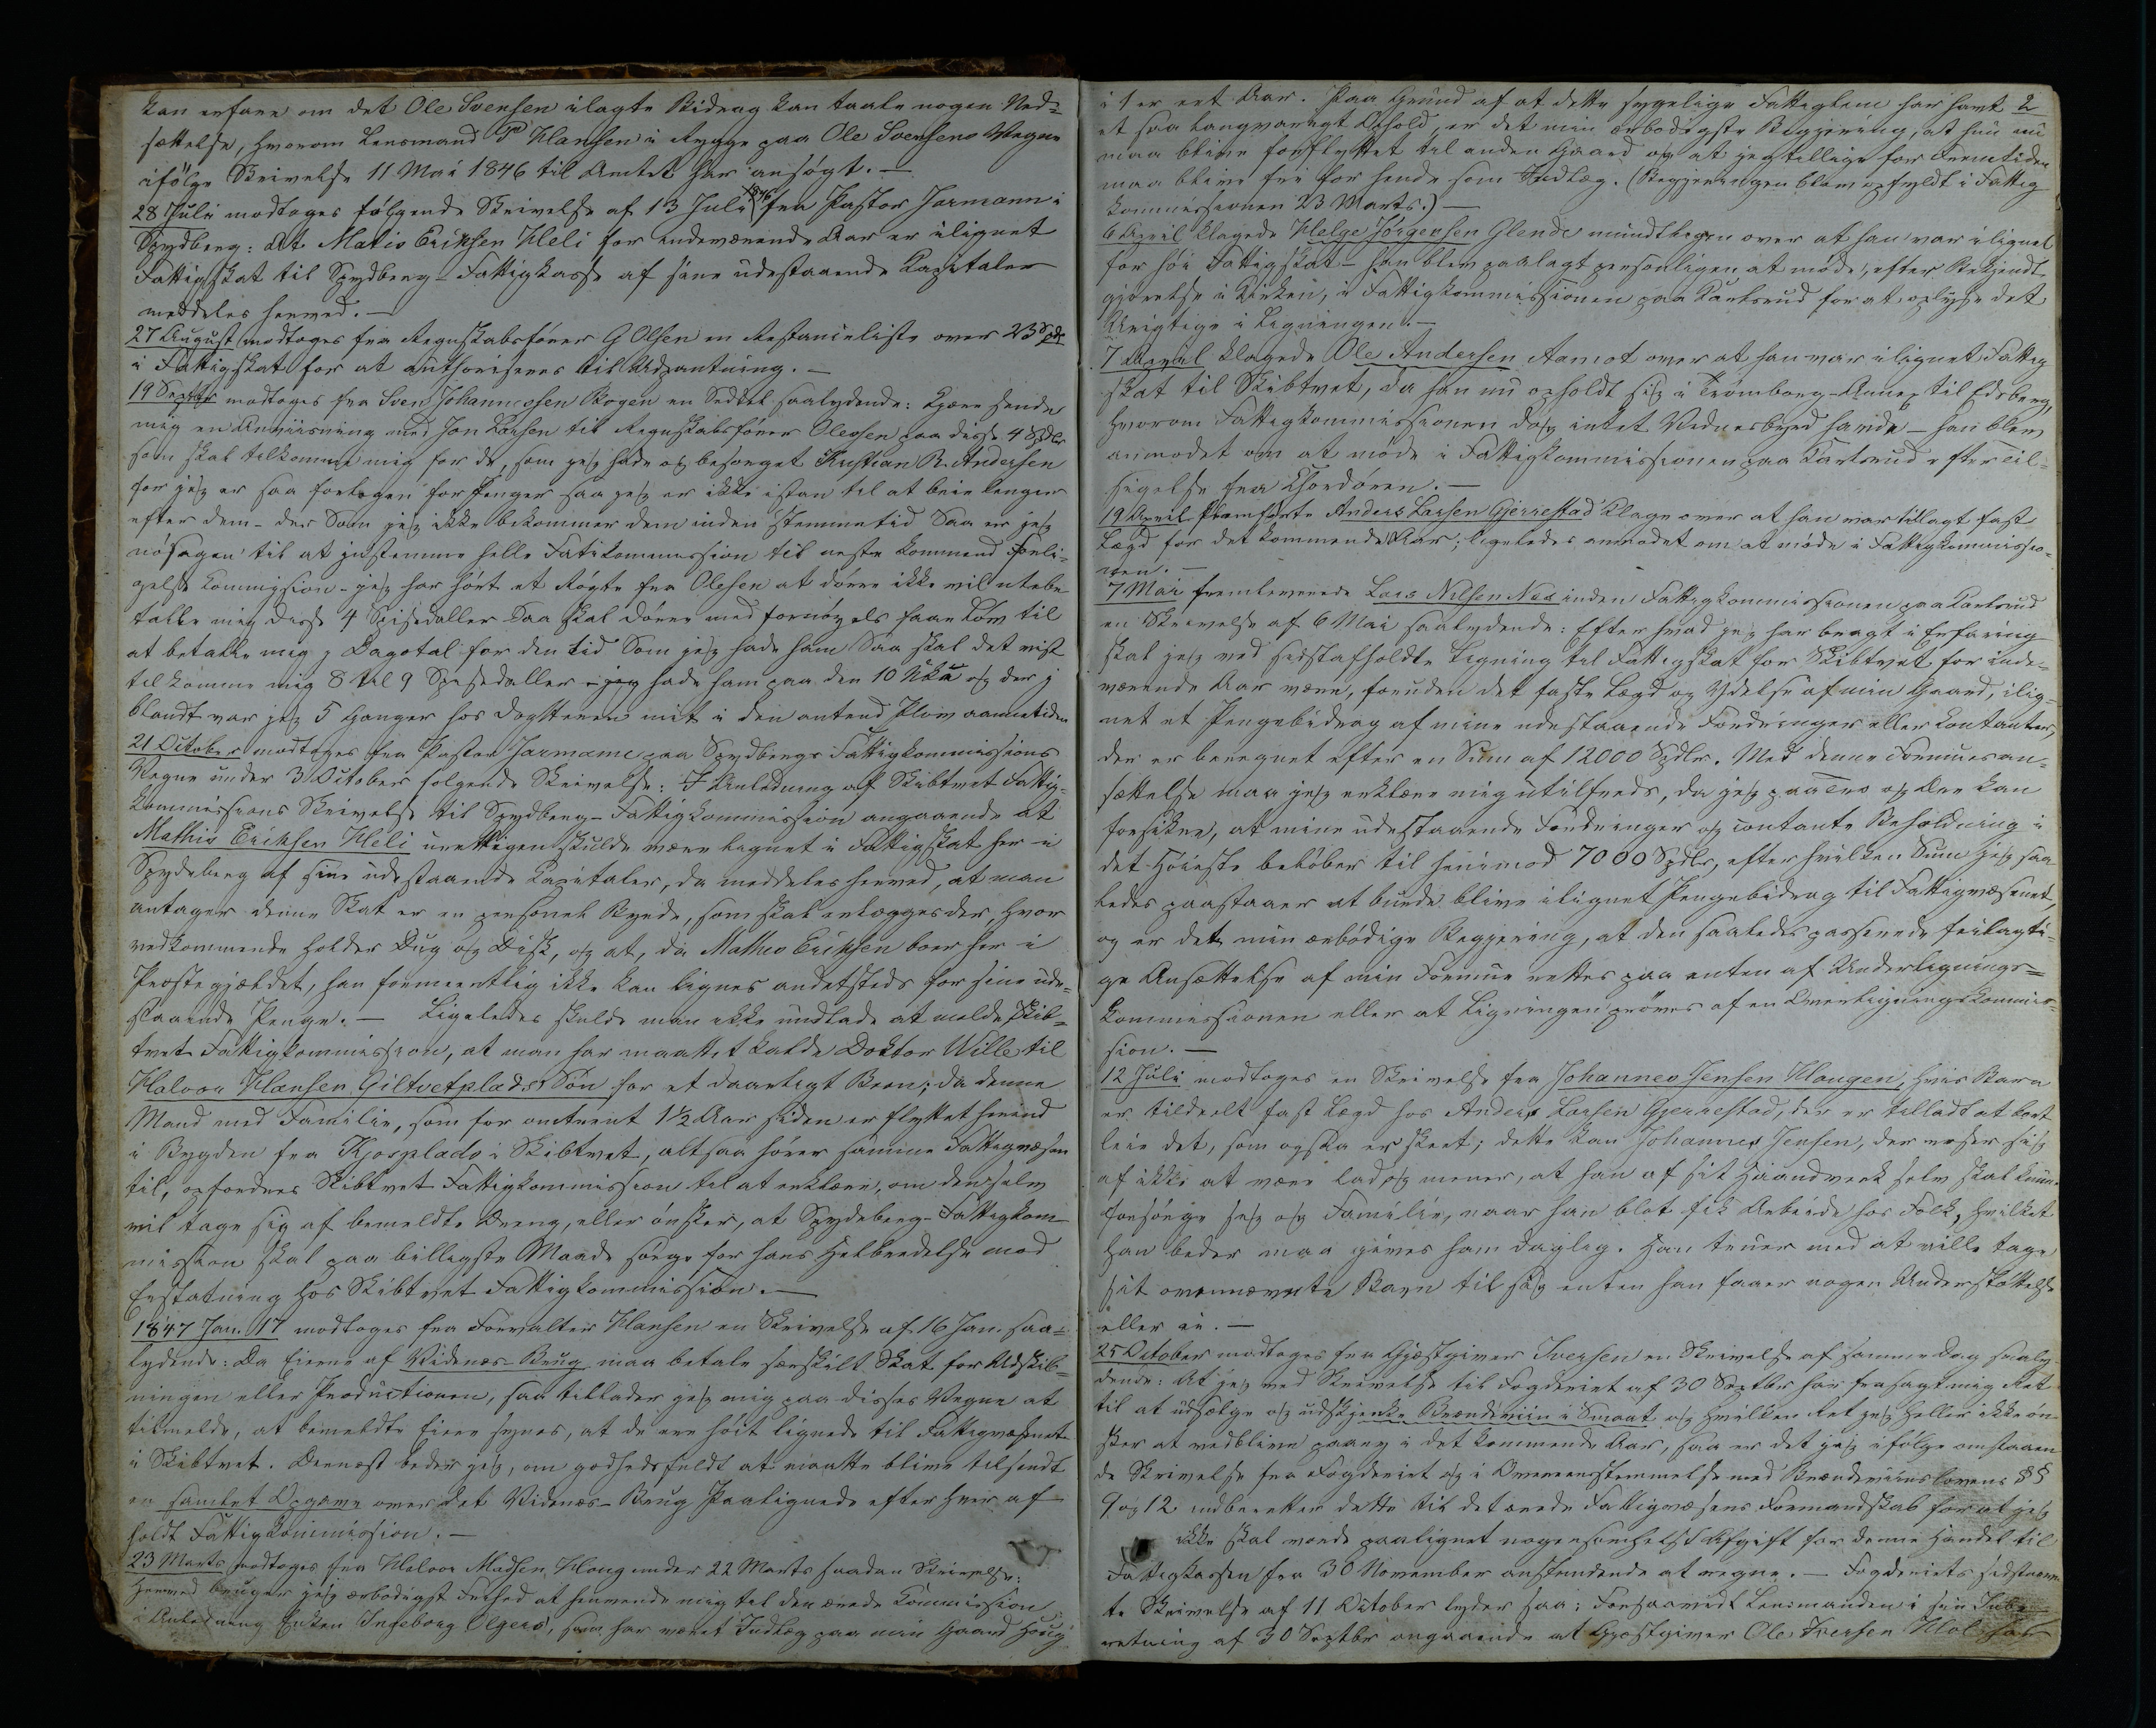 kan erfare om det Ole Svensen ilagte Bidrag kan taale nogen Ned=
sættelse, hvorom Lensmand Hansen i Rygge paa Ole Svensens Vegne
ifölge Skrivelse 11 Mai 1846 til Amtet har ansögt. —
28 Juli modtoges fölgende Skrivelse af 13 Juli 1846 fra Pastor Jormann i
Spydberg: At Matis Eriksen Heli for indeværende Aar er ilignet
Fattigskat til Spydberg-Fattigkasse af sine udestaaende Kapitaler
meddeles herved. —
27 August modtoges fra Regnskabsförer G Olsen en Restanceliste over 23 Spd
i Fattigskat for at authoriseres til Udpantning. —
19 Septbr modtoges fra Sven Johannessen Kogen en Seddel saalydende: Kjære sende
mig en Anviisning med Jon Larsen til Regnskabsförer Olessen paa disse 4 Spdlr
som skal tilkomme mig for de, som jeg hade og besörget Kristian R. Andersen
for jeg er saa forlegen for Penger saa jeg er ikke istan til at beie lenger
efter dem - der Som jeg ikke bekommer dem inden stemmetid Saa er jeg
nösagen til at instemme helle Fatikommission til neste kommend Forli-
gelse Kommission - jeg har hört et Rögte fra Olesen at dörre ikke vil utebe
talle mig disse 4 Spisedaller Saa skal dörre med fornögels faae Lov til
at betalle mig p Dagotal for den tid Som jeg hade ham Saa skal det vist
tilkomme mig 8 til 9 Spesedaller i jeg hade ham paa den 10 Uka og der j
blandt var jeg 5 Ganger hos Dogtteren mit i den antend Plov aannetiden
21 October modtoges fra Pastor Jormann paa Spydbergs Fattigkommissions
Vegne under 3 October folgende Skrivelse: I Anledning af Skibtvet Fattig=
kommissions Skrivelse til Spydberg-Fattigkommission angaaende at
Mathis Eriksen Heli urettigen skulde være lignet i Fattigskat her i
Spydeberg af sine udestaaende Kapitaler, da meddeles herved, at man
antager denne Skat er en personel Byrde, som skal erlægges der, hvor
vedkommende holder Dug og Disk, og at, da Mathis Eriksen boer her i
Præstegjældet, han formentlig ikke kan lignes andetsteds for sine ude=
staaende Penge. — Ligeledes skulde man ikke undlade at melde Skib=
tvet Fattigkommission, at man har maattet kalde Doktor Wille til
Halvor Hansen Giltvetplads's Sön for et daarligt Been; da denne
Mand med Familie, som for omtrent 1½ Aar siden er flyttet herind
i Bygden fra Kjosplads i Skibtvet, altsaa hörer samme Fattigvæsen
til, opfordres Skibtvet Fattigkommission til at erklære, om den selv
vil tage sig af bemeldte Dreng, eller önsker, at Spydeberg-Fattigkom-
mission skal paa billigste Maade sörge for hans Helbredelse mod
Erstatning hos Skibtvet Fattigkommission. —
1847 Jan. 17 modtoges fra Forvalter Hansen en Skrivelse af 16 Jan. saa=
lydende: Da Eierne af Vidnæs-Brug maa betale særskilt Skat for Udskib=
ningen eller Productionen, saa tillader jeg mig paa disses Vegne at
tilmelde, at bemeldte Eiere synes, at de ere höit lignede til Fattigvæsnet
i Skibtvet. Dernæst beder jeg, om godhedsfuldt at maatte blive tilsendt
en samlet Opgave over det Vidnæs-Brug Paalignede efter hver af
holdt Fattigkommission. —
23 Marts modtoges fra Halvor Madsen Houg under 22 Marts saadan Skrivelse:
Herved bruger jeg ærbödigst Frihed at henvende mig til den ærede Commission
i Anledning Enken Ingeborg Olgers', som har været Indlæg paa min Gaard Houg
2
i 1 er eet Aar. Paa Grund af at dette sygelige Fattiglem har havt
et saa langvarigt Ophold, er det min ærbödigste Begjering, at hun nu
maa blive forflyttet til anden Gaard og at jeg tillige for Fremtiden
maa blive fri for hende som Indlæg. (Begjeringen blev opfyldt i Fattig
kommissionen 23 Marts.) —
6 April klagede Helge Jörgensen Glende mundtligen over at han var ilignet
for höi Fattigskat - han blev paalagt personligen at möde, efter Bekjendt-
gjörelse i Kirken, i Fattigkommissionen paa Karlsrud for at oplyse det
Urigtige i Ligningen. —
7 April klagede Ole Andersen Aamot over at han var ilignet Fattig
skat til Skibtvet, da han nu opholdt sig i Trömborg-Annex til Edsberg,
hvorom Fattigkommissionen dog intet Vidnesbyrd havde - han blev
anmodet om at möde i Fattigkommissionen paa Karlsrud efter Til=
sigelse fra Kirkedören. —
19 April fremførte Anders Larsen Gjerrestad Klage over at han var tillagt fast
Lægd for det kommende Aar; ligeledes anmodet om at möde i Fattigkommissio-
nen. —
7 Mai fremleverede Lars Nilsen Næs inden Fattigkommissionen paa Karlsrud
en Skrivelse af 6 Mai saalydende: Efter hvad jeg har bragt i Erfaring
skal jeg ved sidstafholdte Ligning til Fattigskat for Skibtvet for inde=
værende Aar være, foruden det faste Lægd og Ydelse af min Gaard, ilig-
net et Pengebidrag af mine udestaaende Fordringer eller Contanter,
der er beregnet efter en Sum af 12000 Spdlr. Med denne Formuesan=
sættelse maa jeg erklære mig utilfreds, da jeg paa Tro og Ære kan
forsikre, at mine udestaaende Fordringer og contante Beholdning i
det Höieste belöber til henimod 7000 Spdlr, efter hvilken Sum jeg saa
ledes paastaaer at burde blive ilignet Pengebidrag til Fattigvæsenet,
og er det min ærbödige Begjering, at den saaledes passerede feilagti=
ge Ansættelse af min Formue rettes paa enten af Underlignings=
kommissionen eller at Ligningen pröves af en Overligningskommis=
sion. —
12 Juli modtoges en Skrivelse fra Johannes Jensen Haugen, hvis Barn
er tildeelt fast Lægd hos Anders Larsen Gjerrestad, der er tilladt at bort
leie det, som ogsaa er skeet; dette kan Johannes Jensen, der roser sig
af ikke at være lad og mener, at han af sit Haandverk selv skal kunne
forsörge sig og Familie, naar han blot fik Arbeide hos Folk, hvilket
han beder maa gives ham daglig. Han truer med at ville tage
sit ovennævnte Barn til sig enten han faaer nogen Understöttelse
eller ei. —
25 October modtoges fra Gjæstgiver Iversen en Skrivelse af samme Dag saaly
dende: At jeg ved Skrivelse til Fogderiet af 30 Septbr har frasagt mig Ret
til at udsælge og udskjenke Brændeviin i Smaat og hvilken Ret jeg heller ikke ön-
sker at vedblive paany i det kommende Aar, saa er det jeg ifölge omstaaen
de Skrivelse fra Fogderiet og i Overeensstemmelse med Brændeviinslovens §§
9 og 12 indberetter dette til det ærede Fattigvæsens Formandskab for at jeg
ikke skal vorde paalignet nogensomhelst Afgift for denne Handel til
Fattigkassen fra 30 November anstundende at regne. — Fogderiets sidstnævn
te Skrivelse af 11 October lyder saa: Forsaavidt Lensmanden i sin Inbe
retning af 30 Septbr angaaende at Gjestgiver Ole Iversen Hol har